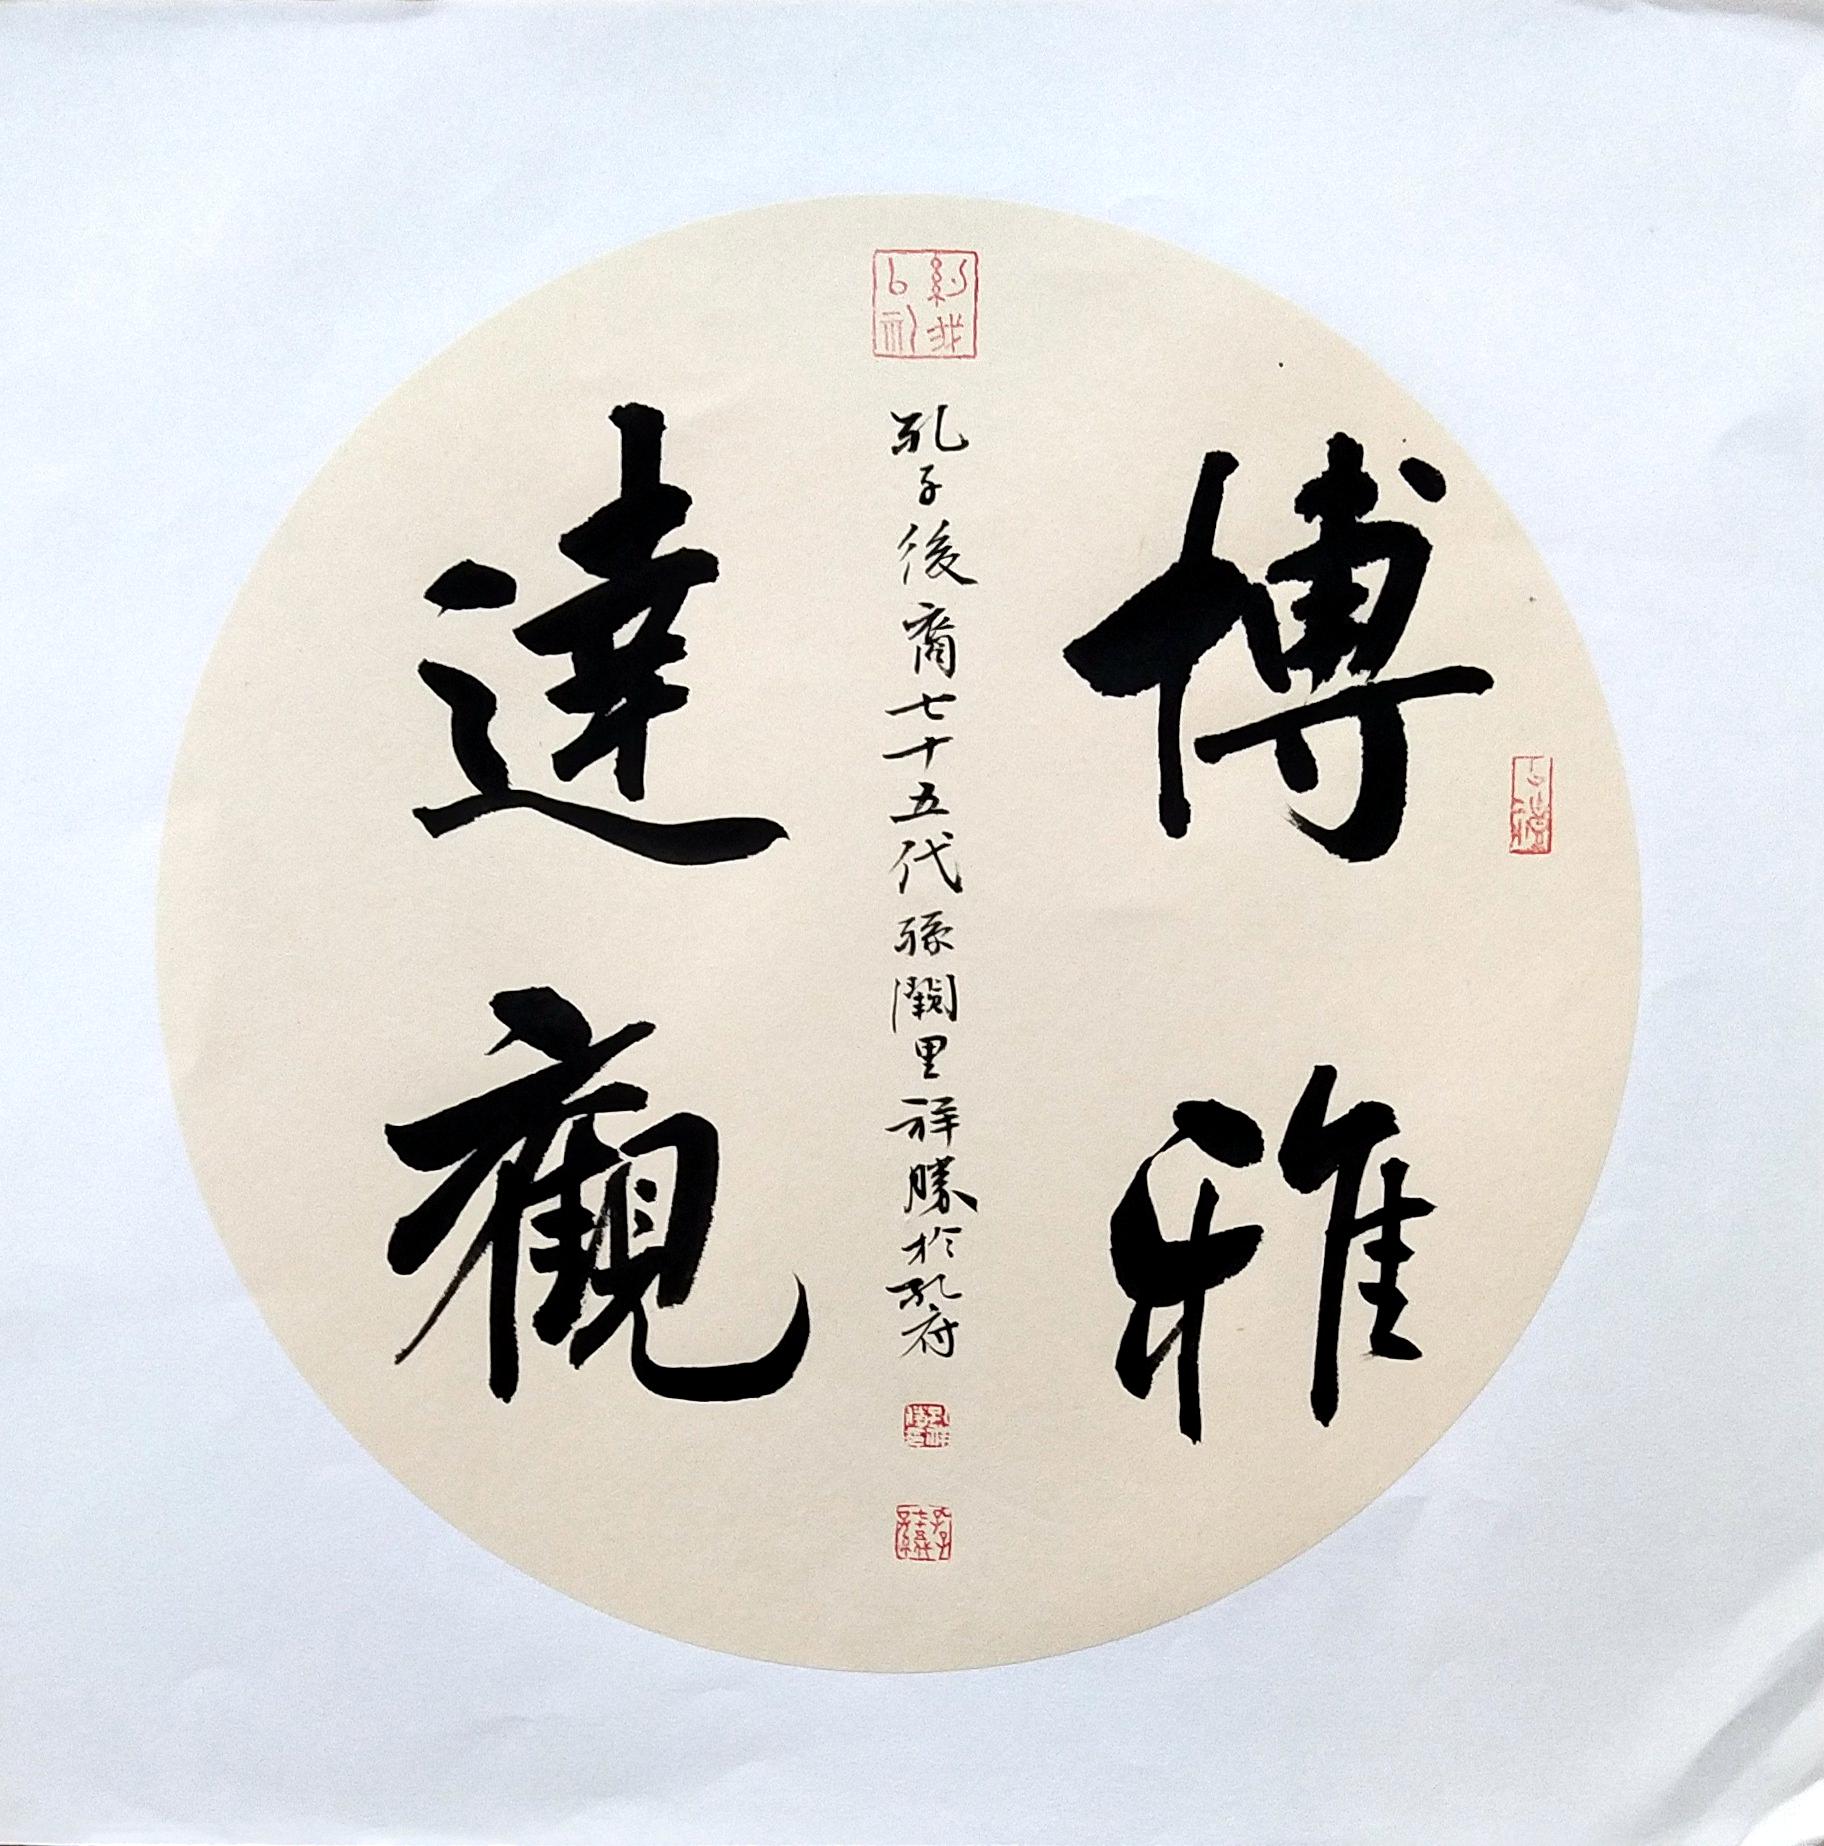 博雅
達觀
孔子後裔七十五代孫闕里祥勝於孔府
約我以禮